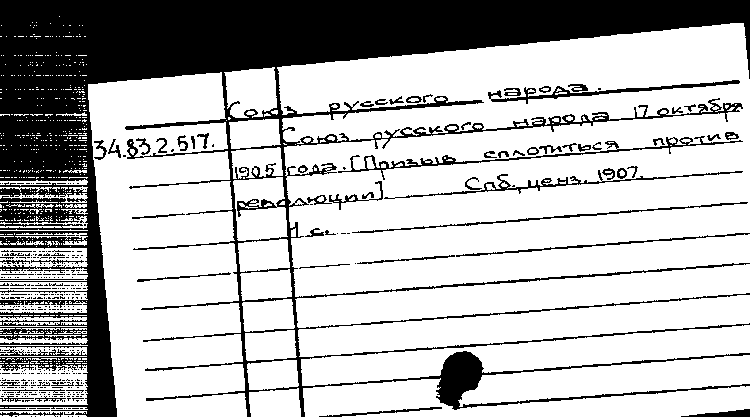 Союз русского народа.
34.83.2.517. Союз русского народа 17 октября
1905 года. [Призыв сплотиться против
революции] Спб., ценз. 1907.
1 с.